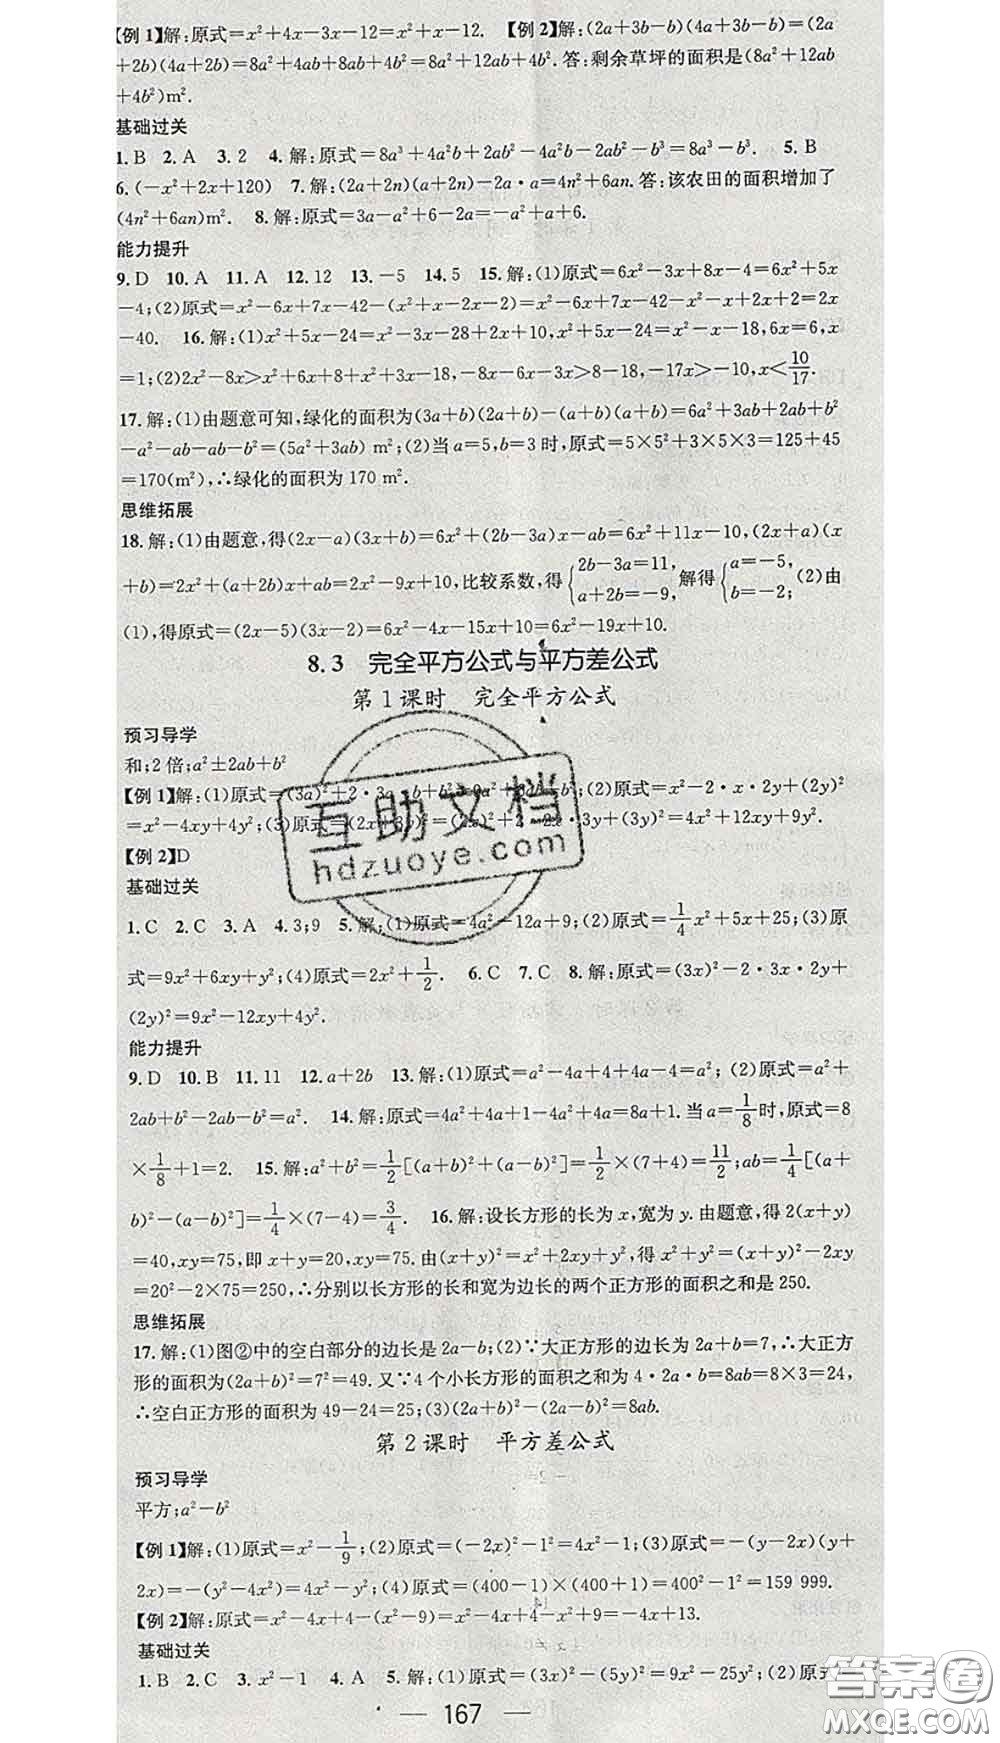 【例 1】解:原式=x²+4x-3x-12=x²+x-12. 【例 2】解:(2a+3b-b)(4a+3b-b)=(2a
+2b)(4a+2b)=8a²+4ab+8ab+4b²=8a²+12ab+4b². 答:剩余草坪的面积是(8a²+12ab
+4b²)m².
基础过关
1. B 2. A 3. 2 4. 解:原式=8a³+4a²b+2ab²-4a²b-2ab²-b³=8a³-b³. 5. B
6. (-x²+2x+120) 7. 解:(2a+2n)(a+2n)-2a·a=4n²+6an. 答:该农田的面积增加了
(4n²+6an)m². 8. 解:原式=3a-a²+6-2a=-a²+a+6.
能力提升
9. D 10. A 11. A 12. 12 13. -5 14. 5 15. 解:(1)原式=6x²-3x+8x-4=6x²+5x
-4;(2)原式=x²-6x+7x-42-(x²+x-2x-2)=x²-6x+7x-42-x²-x+2x+2=2x
-40. 16. 解:(1)x²+5x-24=x²-3x-28+2x+10,x²+5x-24=x²-x-18,6x=6,x
=1;(2)2x²-8x>x²+6x+8+x²+3x-18,-8x-6x-3x>8-18,-17x>-10,x<10/17.
17. 解:(1)由题意可知,绿化的面积为(3a+b)(2a+b)-(a+b)(a+b)=6a²+3ab+2ab+b²
-a²-ab-ab-b²=(5a²+3ab) m²;(2)当 a=5,b=3 时,原式=5×5²+3×5×3=125+45
=170(m²),∴绿化的面积为 170 m².
思维拓展
18. 解:(1)由题意,得(2x-a)(3x+b)=6x²+(2b-3a)x-ab=6x²+11x-10,(2x+a)(x
+b)=2x²+(a+2b)x+ab=2x²-9x+10,比较系数,得{2b-3a=11, a+2b=-9, 解得{a=-5, b=-2; (2)由
(1),得原式=(2x-5)(3x-2)=6x²-4x-15x+10=6x²-19x+10.
8.3 完全平方公式与平方差公式
第 1 课时 完全平方公式
预习导学
和;2 倍;a²±2ab+b²
【例 1】解:(1)原式=(3a)²+2·3a·b+b²=9a²+6ab+b²;(2)原式=x²-2·x·2y+(2y)²
=x²-4xy+4y²;(3)原式=(2x+3y)²=(2x)²+2·2x·3y+(3y)²=4x²+12xy+9y².
【例 2】D
基础过关
1. C 2. C 3. A 4. 3;9 5. 解:(1)原式=4a²-12a+9;(2)原式=1/4x²+5x+25;(3)原
式=9x²+6xy+y²;(4)原式=2x²+1/2. 6. C 7. C 8. 解:原式=(3x)²-2·3x·2y+
(2y)²=9x²-12xy+4y².
能力提升
9. D 10. B 11. 11 12. a+2b 13. 解:(1)原式=a²-4a+4+4a-4=a²;(2)原式=a²+
2ab+b²-2ab-b²=a². 14. 解:原式=4a²+4a+1-4a²+4a=8a+1. 当 a=1/8时,原式=8
×1/8+1=2. 15. 解:a²+b²=1/2[(a+b)²+(a-b)²]=1/2×(7+4)=11/2;ab=1/4[(a+
b)²-(a-b)²]=1/4×(7-4)=3/4. 16. 解:设长方形的长为 x,宽为 y. 由题意,得 2(x+y)
=40,xy=75,即 x+y=20,xy=75. 由(x+y)²=x²+2xy+y²,得 x²+y²=(x+y)²-2xy
=20²-2×75=250,∴分别以长方形的长和宽为边长的两个正方形的面积之和是 250.
思维拓展
17. 解:(1)图②中的空白部分的边长是 2a-b;(2)∵大正方形的边长为 2a+b=7,∴大正方
形的面积为(2a+b)²=7²=49. 又∵4 个小长方形的面积之和为 4·2a·b=8ab=8×3=24,
∴空白正方形的面积为 49-24=25;(3)(2a+b)²-(2a-b)²=8ab.
第 2 课时 平方差公式
预习导学
平方;a²-b²
【例 1】解:(1)原式=x²-1/9;(2)原式=(-2x)²-1²=4x²-1;(3)原式=-(y-2x)(y+
2x)=-(y²-4x²)=4x²-y²;(4)原式=(400-1)×(400+1)=400²-1²=159 999.
【例 2】解:原式=x²-4x+4-(x²-9)=x²-4x+4-x²+9=-4x+13.
基础过关
1. B 2. C 3. x²-1 4. A 5. 解:(1)原式=(3x)²-(5y)²=9x²-25y²;(2)原式
— 167 —
互助文档
hdzuoye.com
答案圈
MXQE.COM